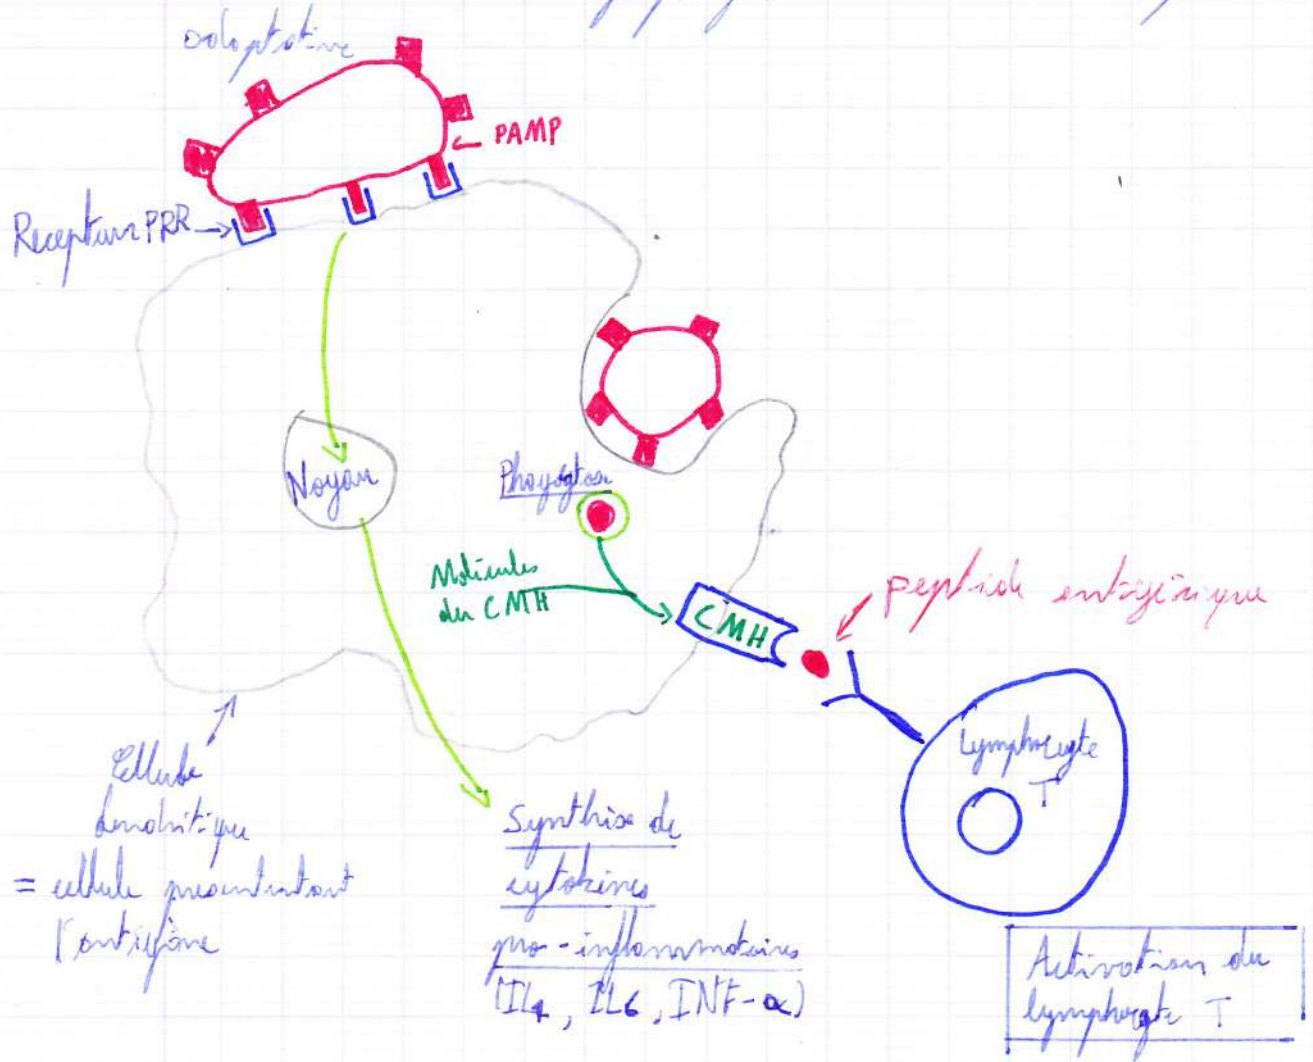 adaptative
PAMP
Recepteurs PRR
Noyau
Molécules
du CMH
CMH
peptide antigénique
Lymphocyte
T
Cellule
dendritique
= cellule présentant
l'antigène
Synthèse de
cytokines
pro-inflammatoires
(IL1, IL6, INF-α)
Activation du
lymphocyte T